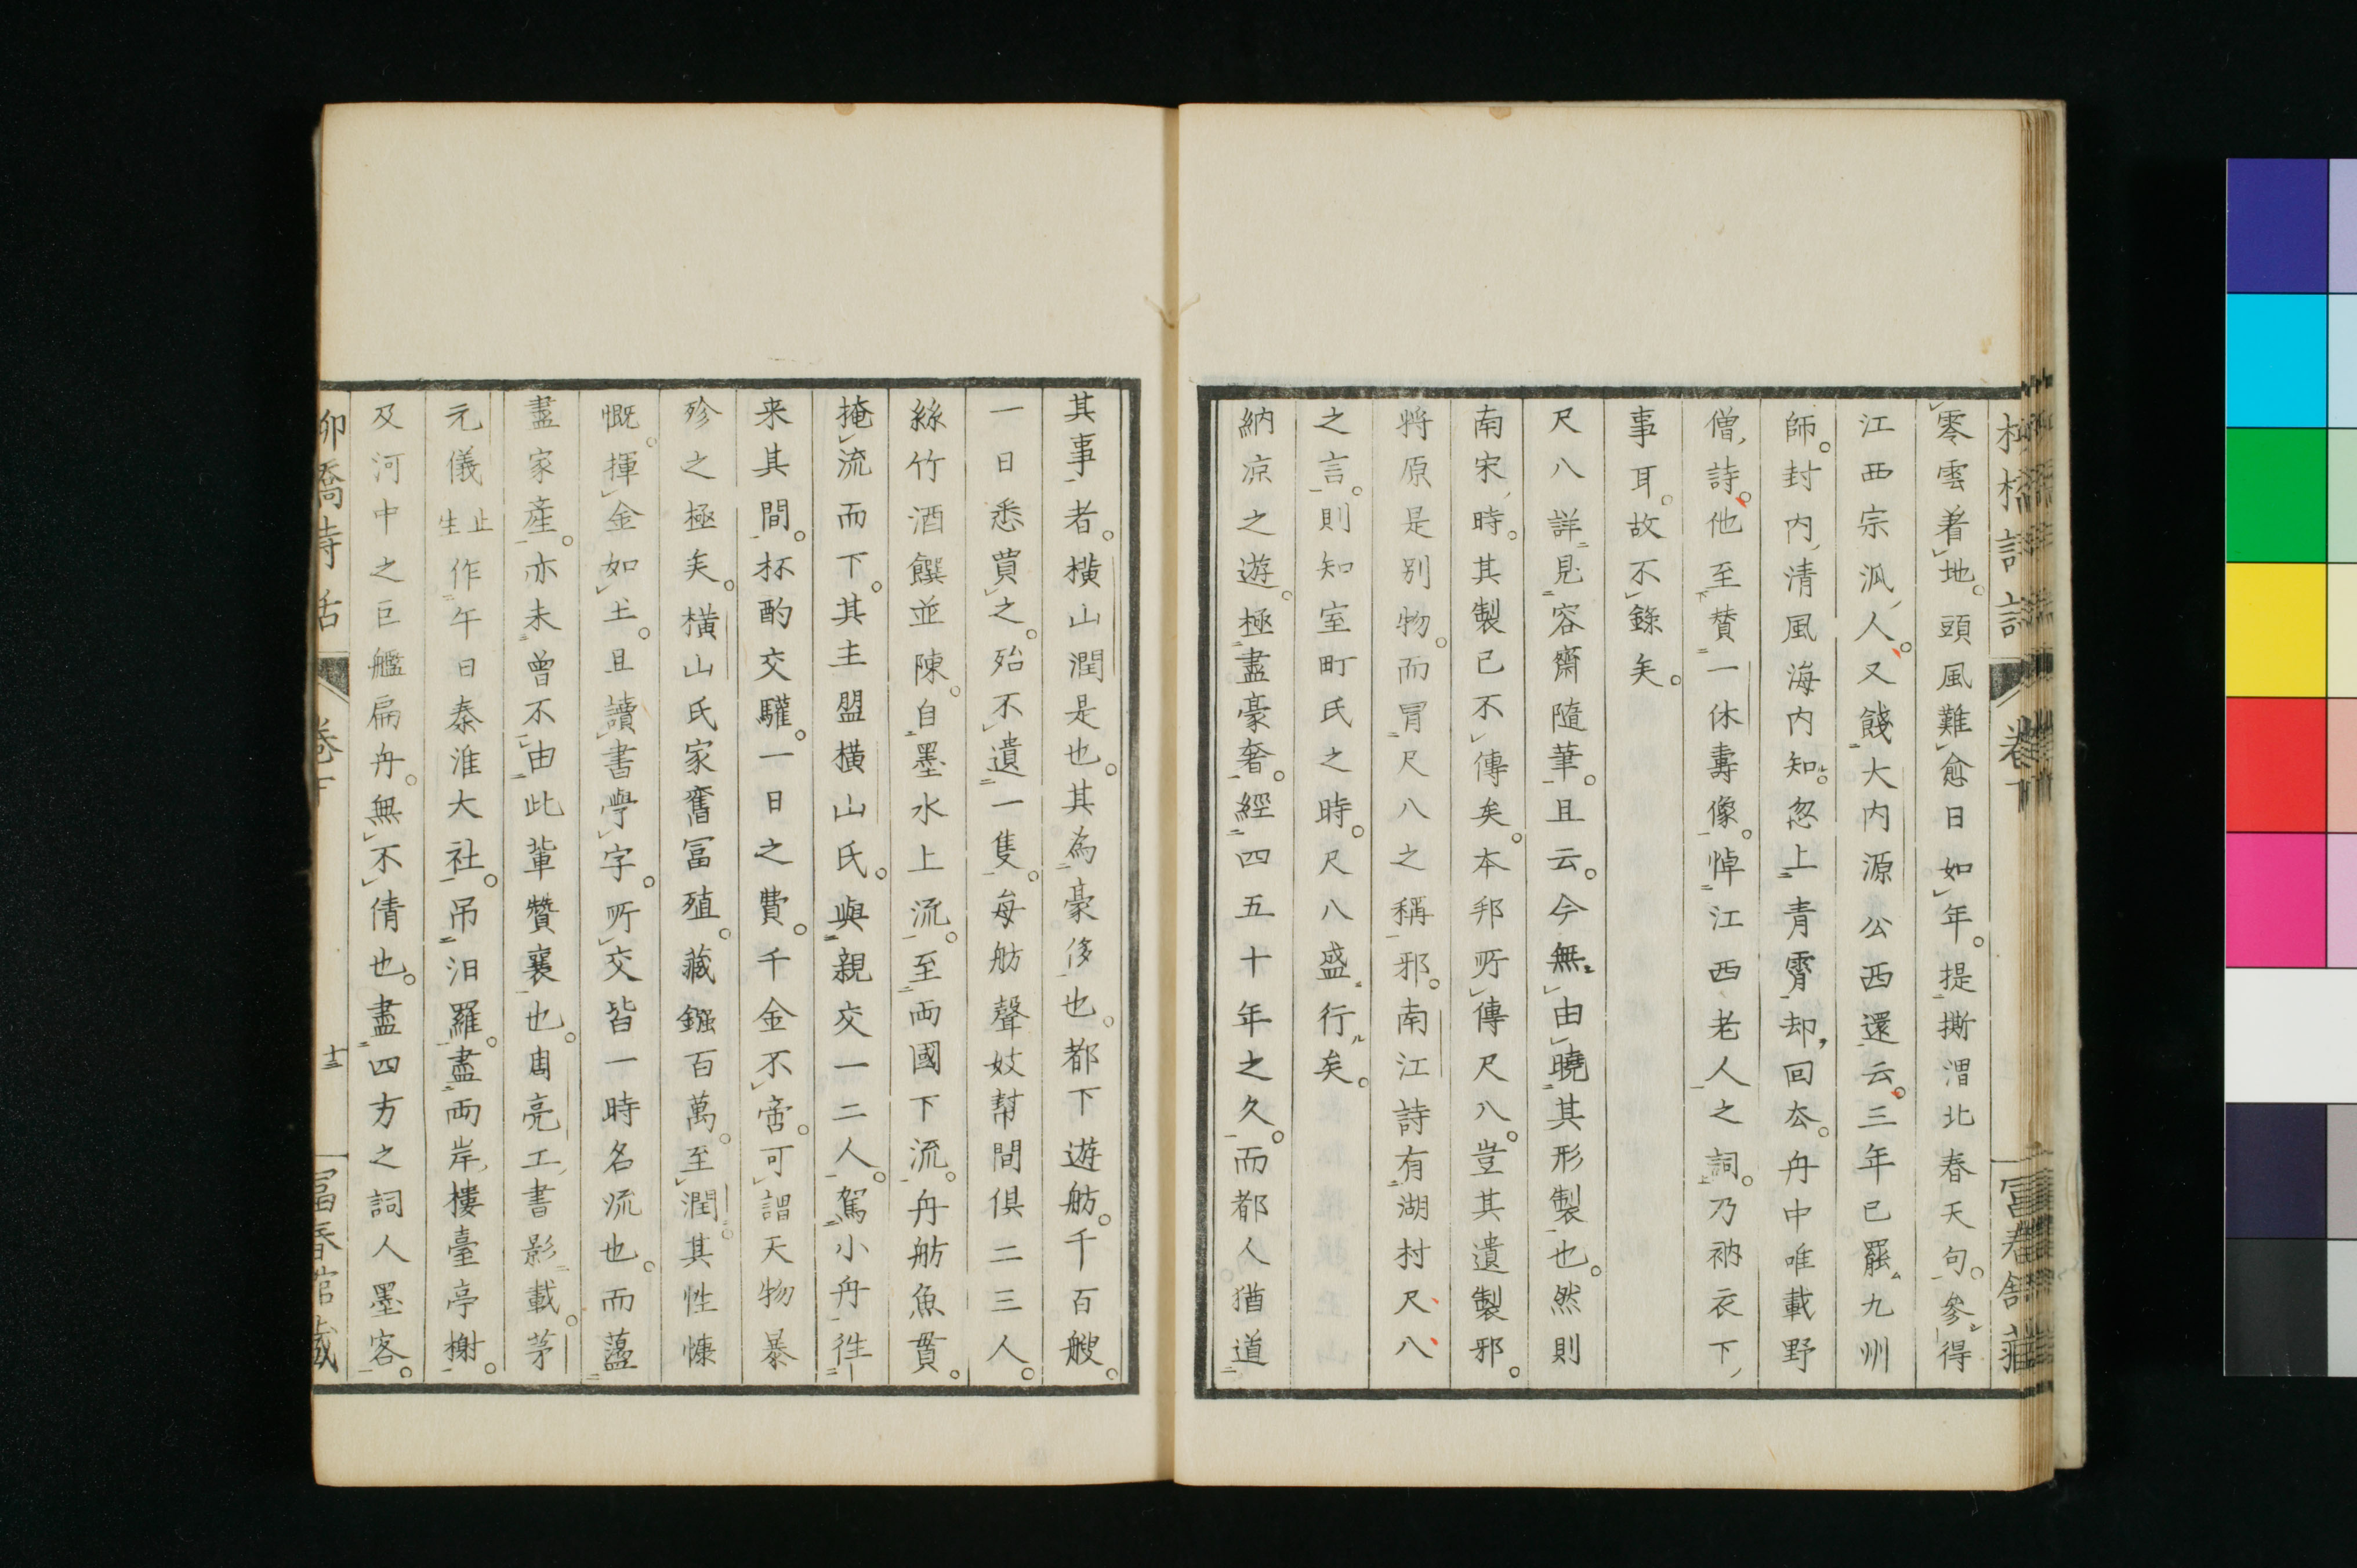 零雲着地。頭風難愈日如年。提撕渭北春天句。參得
江西宗派人。又餞大内源公西還云。三年已罷九州
師。封内清風海内知。忽上青霄却回太。舟中唯載野
僧詩。他至賛一休壽像。悼江西老人之詞。乃衲衣下
事耳。故不錄矣。
尺八詳見容齋隨筆。且云。今無由曉其形製也。然則
南宋時。其製已不傳矣。本邦所傳尺八。豈其遺製邪。
將原是別物。而冐尺八之稱邪。南江詩有湖村尺八
之言。則知室町氏之時。尺八盛行矣。
納凉之遊。極盡豪奢。經四五十年之久。而都人猶道
其事者。橫山潤是也。其為豪侈也。都下遊舫。千百艘。
一日悉買之。殆不遺一隻。每舫聲妓幇間俱二三人。
絲竹酒饌並陳。自墨水上流。至両國下流。舟舫魚貫。
掩流而下。其主盟橫山氏。與親交一二人。駕小舟徃
来其間。杯酌交驩。一日之費。千金不啻。可謂天物暴
殄之極矣。橫山氏家舊冨殖。藏鏹百萬。至潤。其性慷
慨。揮金如土。且讀書學字。所交皆一時名流也。而蕩
盡家產。亦未曾不由此輩贊襄也。周亮工書影載。茅
元儀止生作午日秦淮大社。吊汨羅。盡両岸樓臺亭榭。
及河中之巨艦扁舟。無不倩也。盡四方之詞人墨客。
柳橋詩話 卷下 十三